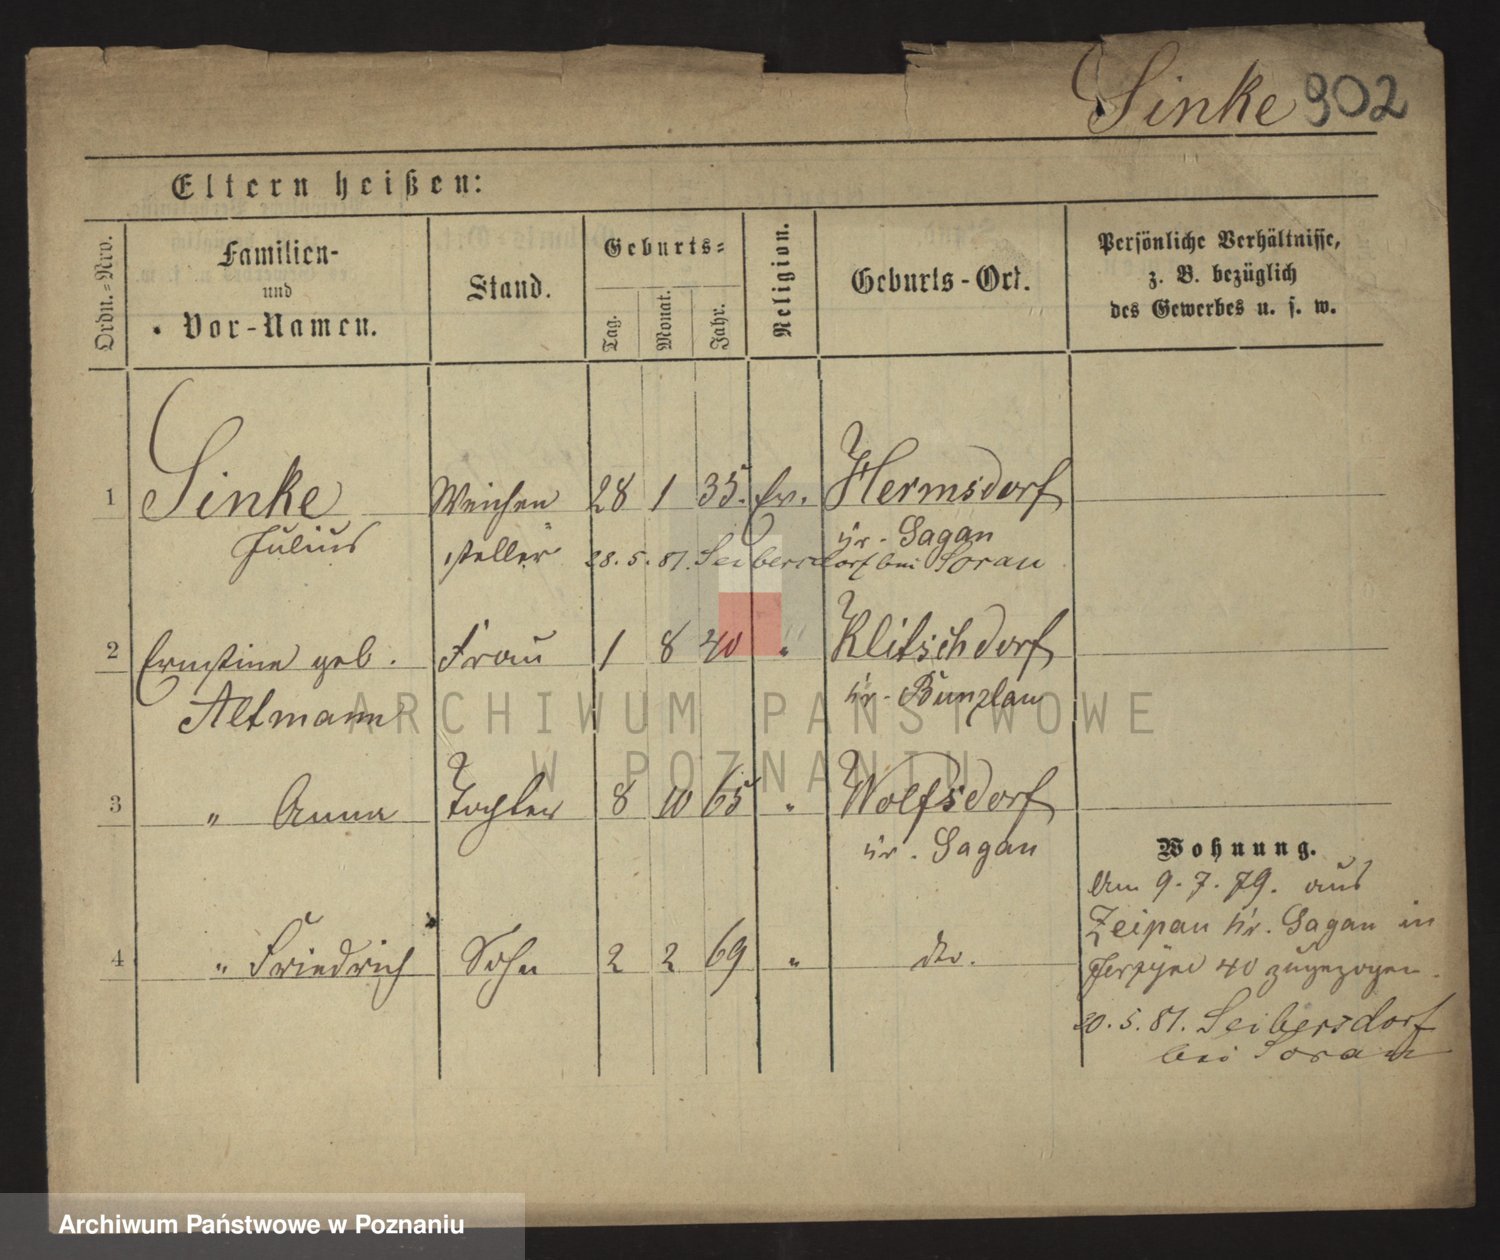 Sinke 902
Eltern heißen:
Ordn.-Nro.
Familien-
und
Vor-Namen.
Stand.
Geburts-
Tag.
Monat.
Jahr.
Religion.
Geburts-Ort.
Persönliche Verhältnisse,
z. B. bezüglich
des Gewerbes u. s. w.
1 Sinke Weichen 28 1 35. Ev. Hermsdorf
Julius steller Kr. Sagan
28. 5. 81. Seibersdorf bei Sorau
2 Ernstine geb. Frau 1 8 40 " Klitschdorf
Altmann Kr. Bunzlau
3 " Anna Tochter 8 10 65 " Wolfsdorf
Kr. Sagan
4 " Friedrich Sohn 2 2 69 " dto.
Wohnung.
Am 9. 7. 79. aus
Zeipau Kr. Sagan in
Jersyce 40 zugezogen.
20. 5. 81. Seibersdorf
bei Sorau
ARCHIWUM PAŃSTWOWE
W POZNANIU
Archiwum Państwowe w Poznaniu